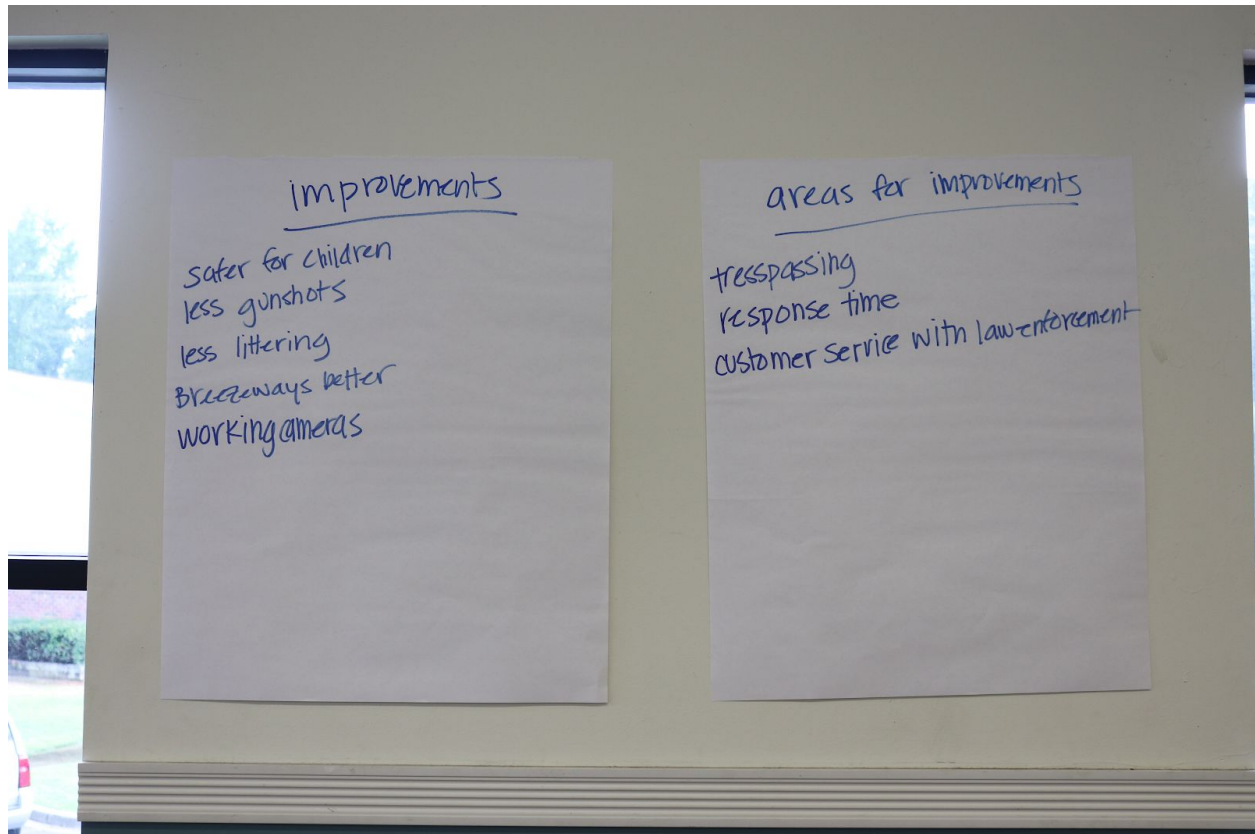 improvements
safer for children
less gunshots
less littering
Breezeways better
working cameras
areas for improvements
tresspassing
response time
customer service with law-enforcement